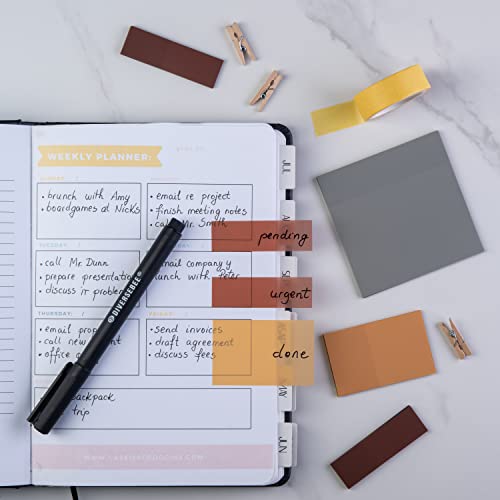 WEEKLY PLANNER:
• brunch with Amy
• boardgames at Nick's
• email re project
• finish meeting notes
• call Mr. Smith
pending
TUESDAY:
• call Mr. Dunn
• prepare presentation
• discuss IT problem
email company y
lunch with Peter
urgent
THURSDAY:
• email
• call new
• office
• send invoices
• draft agreement
• discuss fees
done
backpack
trip
DIVERSEBEE®
JUL
MAY
JUN